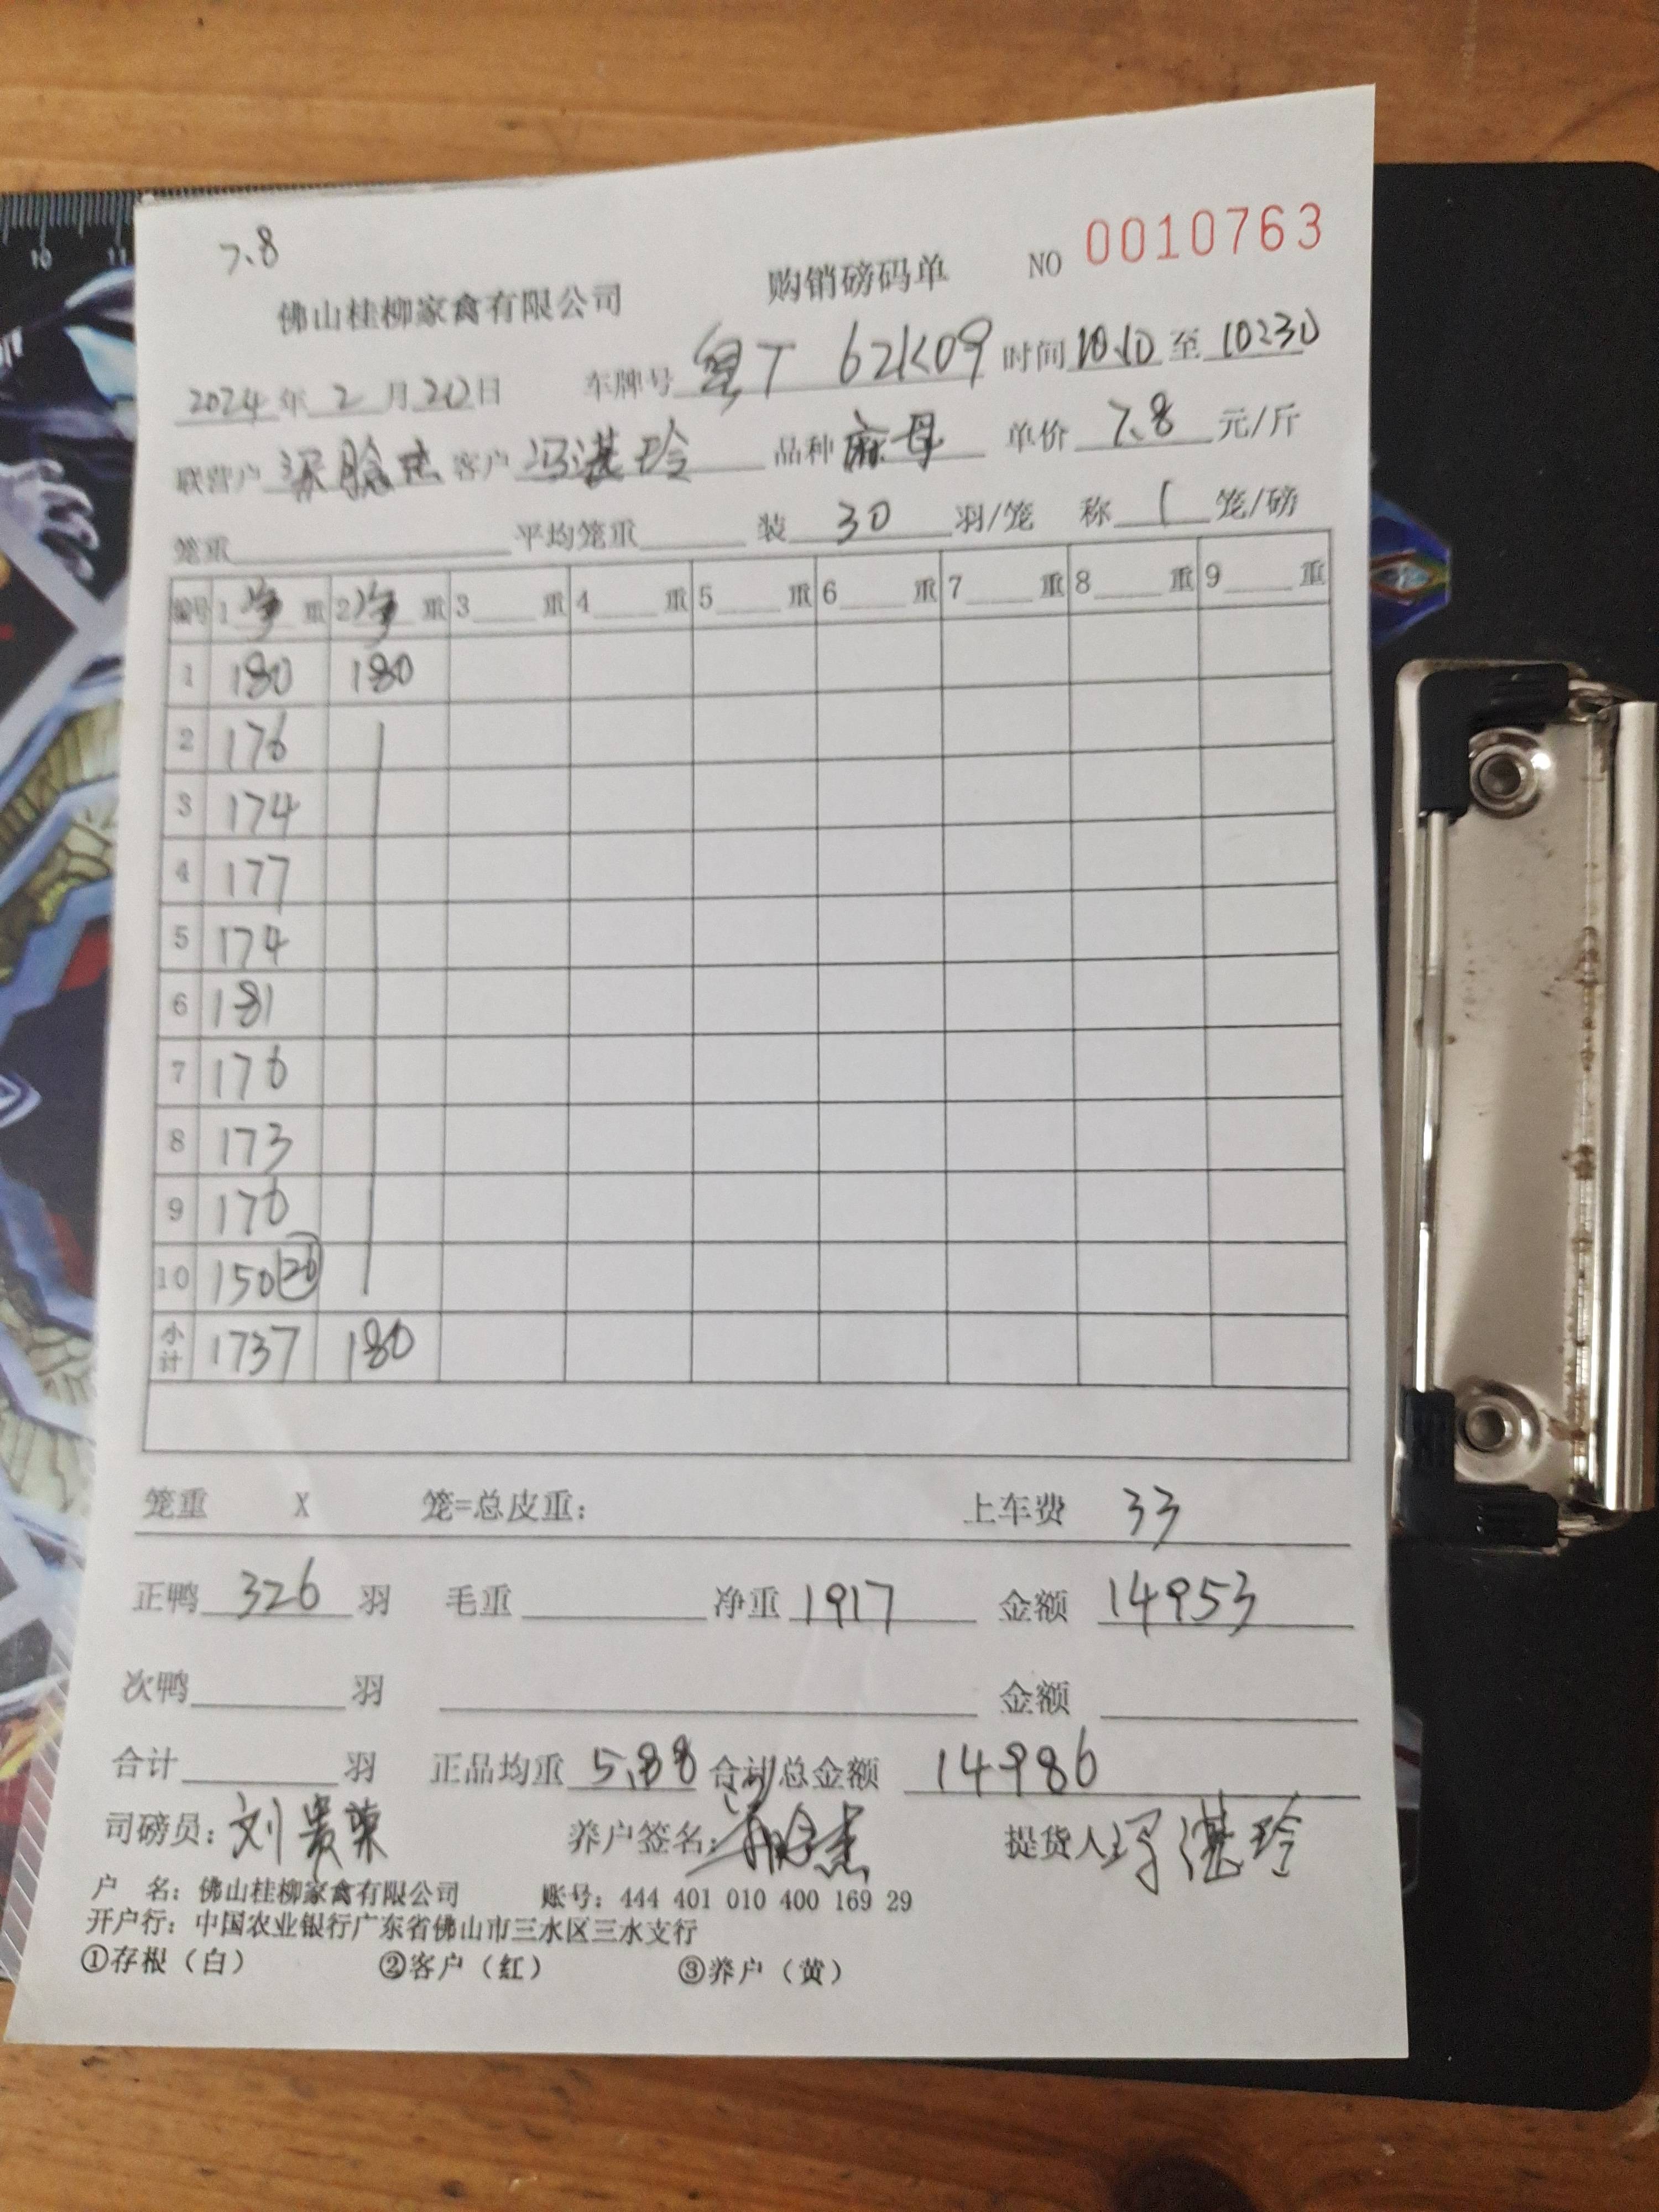 7.8
购销磅码单 NO 0010763
佛山桂柳家禽有限公司
2024年2月20日 车牌号 粤T 62K09 时间10:10至10:30
联营户 客户 冯湛玲 品种 麻母 单价 7.8 元/斤
笼重 平均笼重 装 30 羽/笼 称 1 笼/磅
编号 1 净 重 2 净 重 3 重 4 重 5 重 6 重 7 重 8 重 9 重
1 180 180
2 176
3 174
4 177
5 174
6 181
7 176
8 173
9 176
10 150 (26)
小计 1737 180
笼重 X 笼=总皮重: 上车费 33
正鸭 326 羽 毛重 净重 1917 金额 14953
次鸭 羽 金额
合计 羽 正品均重 5.88 合计总金额 14986
司磅员: 刘贵荣 养户签名: 提货人 冯湛玲
户 名: 佛山桂柳家禽有限公司 账号: 444 401 010 400 169 29
开户行: 中国农业银行广东省佛山市三水区三水支行
①存根（白） ②客户（红） ③养户（黄）
10 11